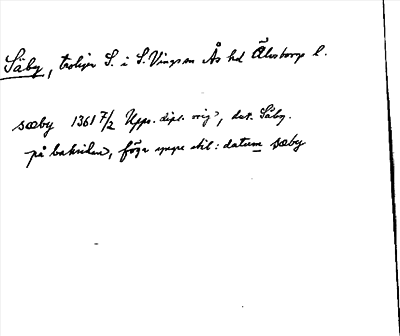 Säby, troligen S. i S. Vings sn Ås hd Älvsborgs l.
sæby 1361 7/2 Upps. dipl. orig., dat. Säby.
på baksidan, föga yngre stil: datum sæby